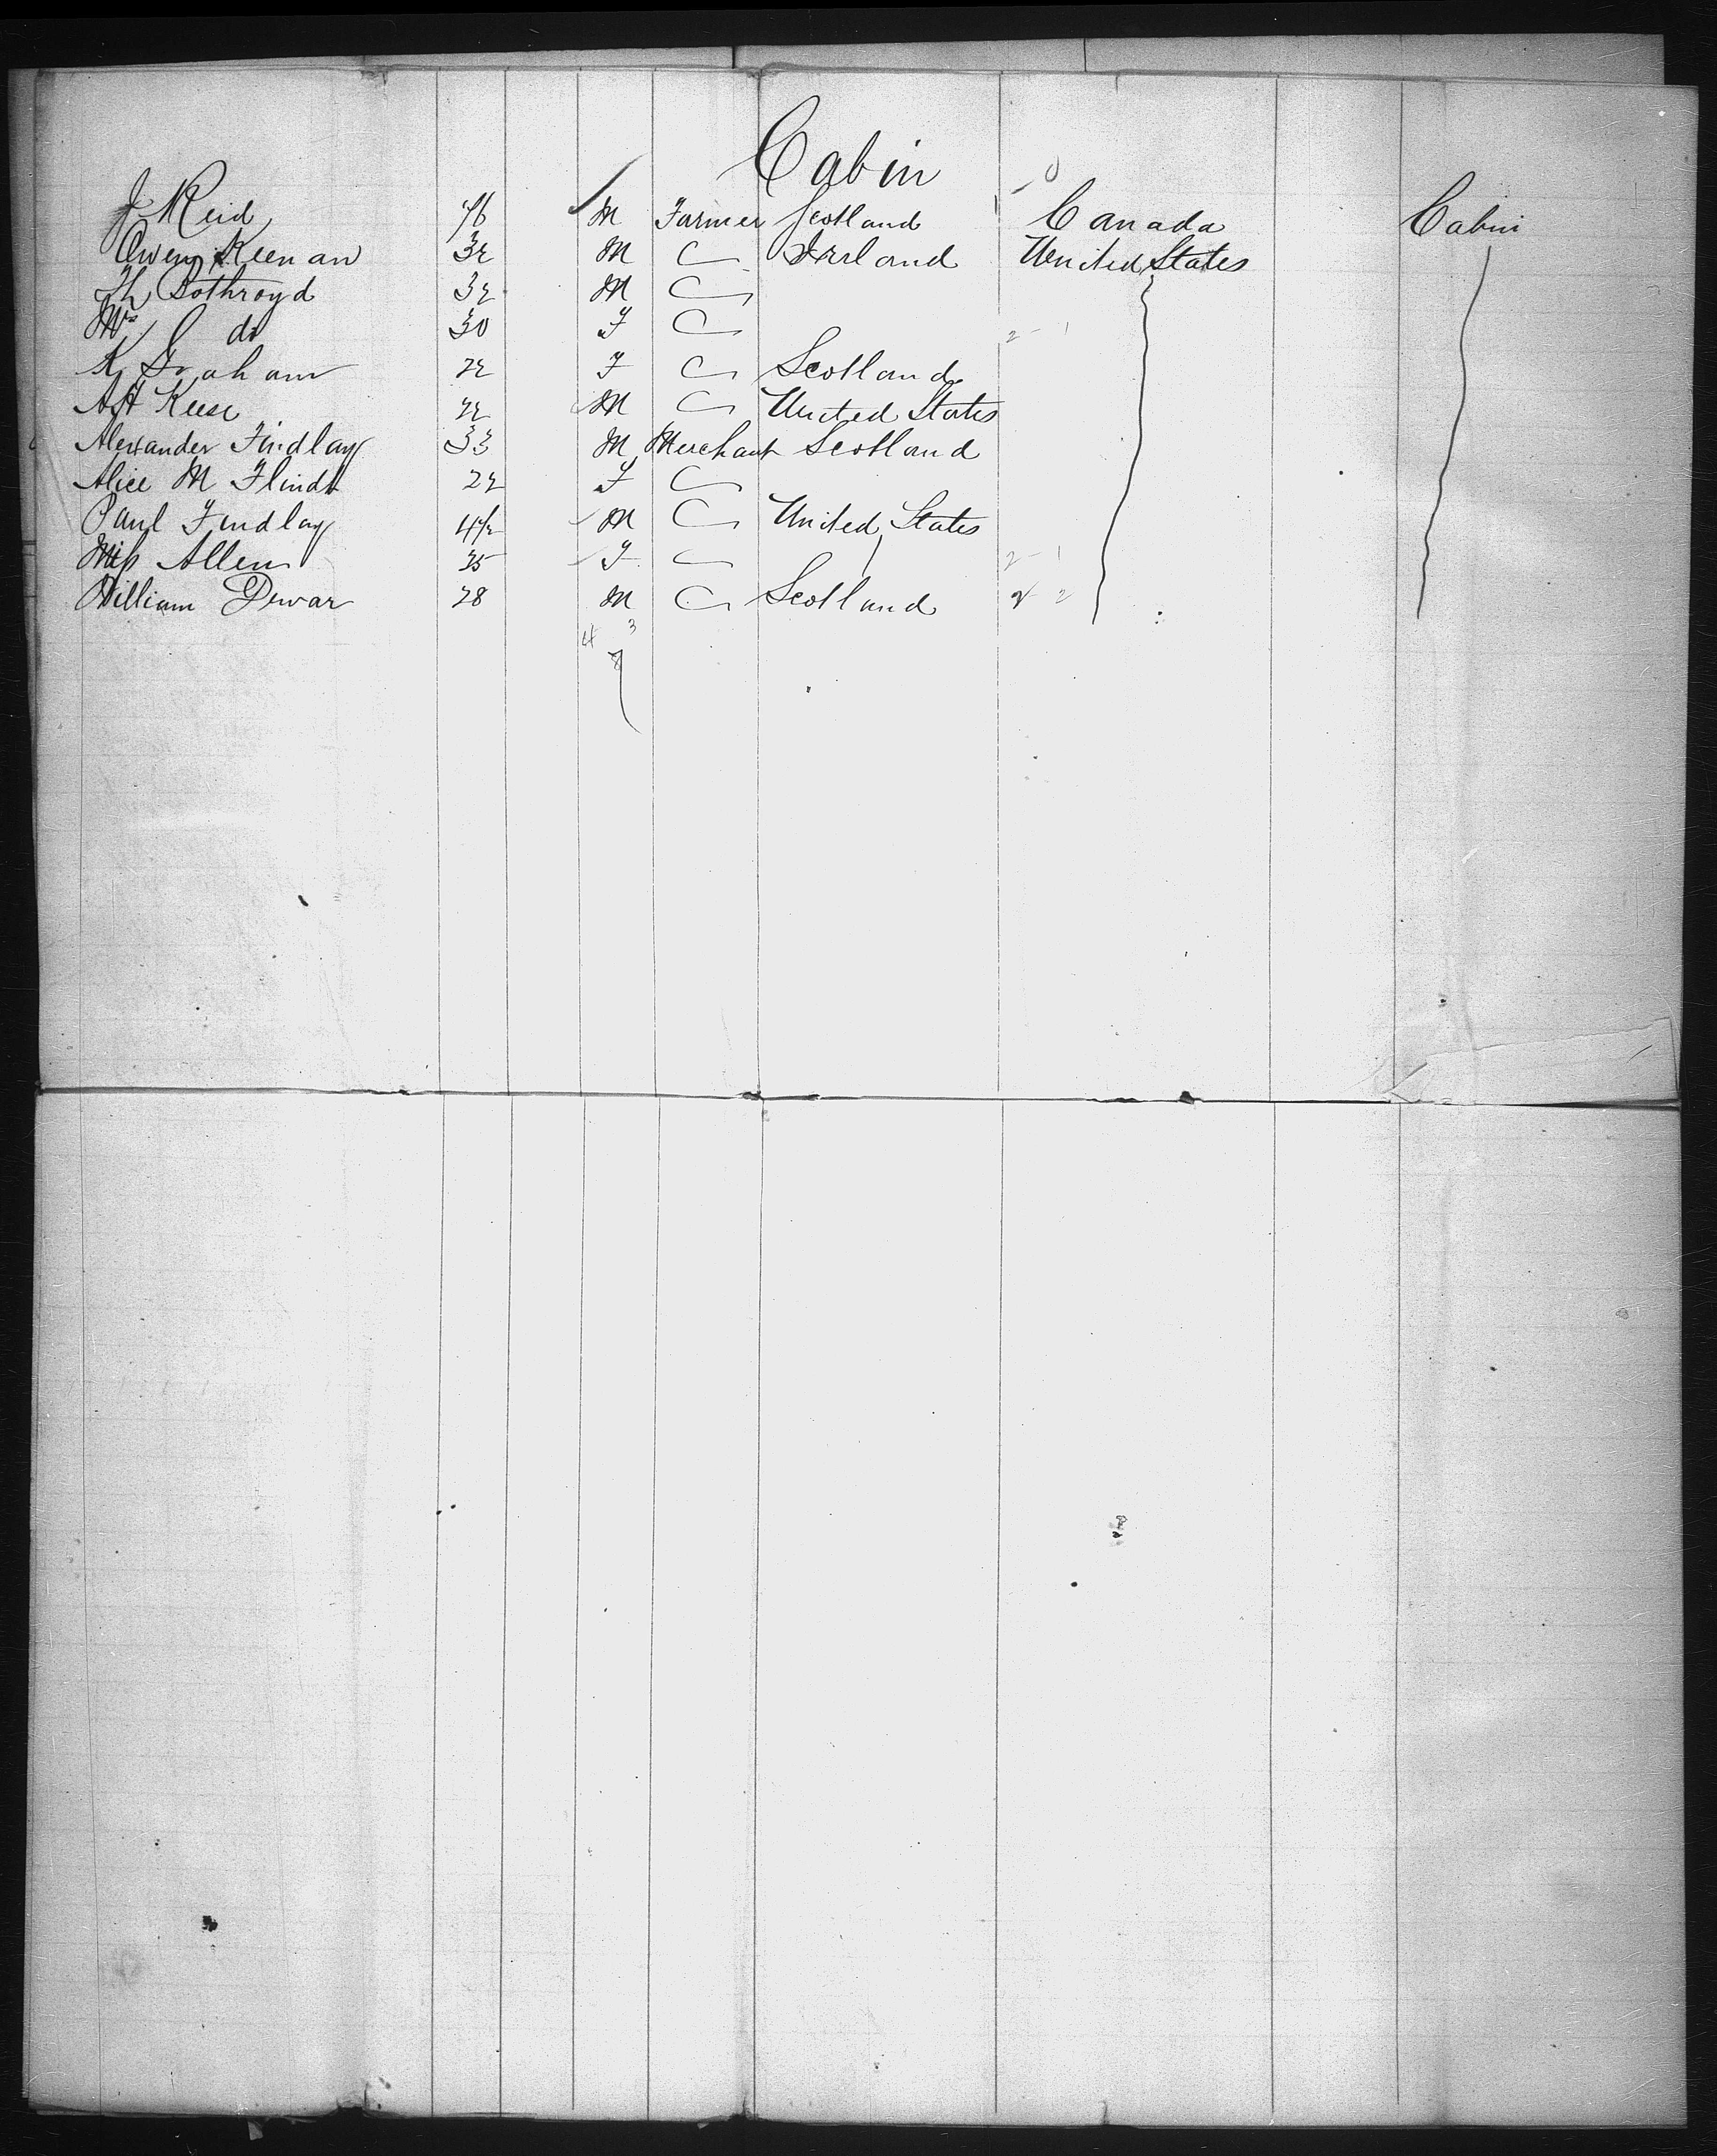 Cabin
J Reid 46 M Farmer Scotland Canada Cabin
Owen Keenan 32 M Ireland United States
Th Bothroyd 32 M
Mrs do 30 F
K Graham 22 F Scotland
A H Keese 22 M United States
Alexander Findlay 33 M Merchant Scotland
Alice M Flindt 22 F
Paul Findlay 4½ M United States
Miss Allen 25 F
William Dewar 28 M Scotland
4 3